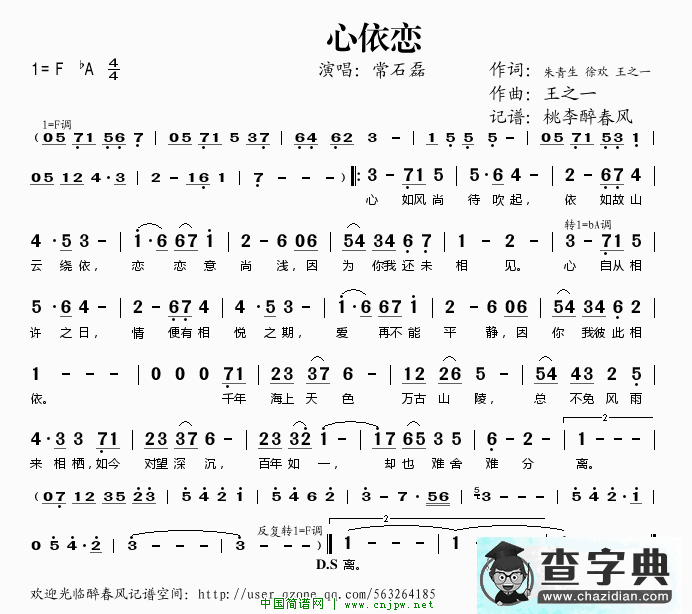 心依恋
1=F ♭A 4/4
演唱：常石磊
作词：朱青生 徐欢 王之一
作曲：王之一
记谱：桃李醉春风
1=F调
( 05 71 56 7 | 05 71 5 37 | 64 62 3 - | 1·5 5 5 - | 05 71 53 1 |
05 12 4·3 | 2 - 16 1 | 7 - - - ) |: 3 - 71 5 | 5·6 5 - | 2 - 67 4 |
心 如风尚 待 吹起， 依 如故山
4·5 3 - | 1·6 67 1 | 2 - 6 06 | 54 34 6 7 | 1 - 2 - | 3 - 71 5 |
转1=bA调
云绕依， 恋 恋意 尚 浅，因 为 你我还未 相 见。 心 自从相
5·6 4 - | 2 - 67 4 | 2·5 3 - | 1·6 67 1 | 2 - 6 06 | 54 34 6 2 |
许 之日， 情 便有相 悦之期， 爱 再不能 平 静，因 你 我彼此相
1 - - - | 0 0 0 71 | 23 37 6 - | 12 02 5 - | 54 43 2 5 |
依。 千年 海上天 色 万古山 陵， 总 不免风 雨
4·3 3 71 | 23 37 6 - | 23 32 1 - | 17 65 3 5 | 6 - 2 - | 1 - - - |
2
来相栖，如今 对望深 沉， 百年如 一， 却也 难舍 难 分 离。
( 07 12 35 23 | 5 4 2 1 | 5 4 6 2 | 3 - 7 - 56 | 3 - - - | 5 4 2·1 |
0 5 4·2 | 3 - - - | 3 - - - ) :| 1 - - - | 1 - - - | 1 - - -
反复转1=F调
2
D.S 离。
欢迎光临醉春风记谱空间：http://user.qzone.qq.com/563264185
中国简谱网 www.cnjpw.net
查字典
www.chazidian.com